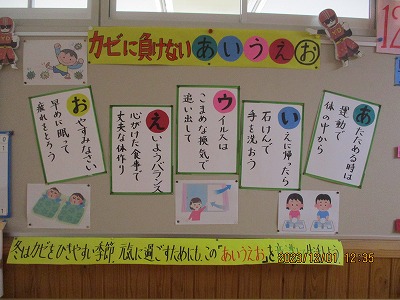 カゼに負けないあいうえお
12
あたためる時は
運動で
体の中から
いえに帰ったら
石けんで
手を洗おう
ウイルスは
こまめな換気で
追い出して
えいようバランス
心がけた食事で
丈夫な体作り
おやすみなさい
早めに眠って
疲れをとろう
冬はカゼをひきやすい季節 元気に過ごすためにも、この「あいうえお」を
2023/12/01 12:35